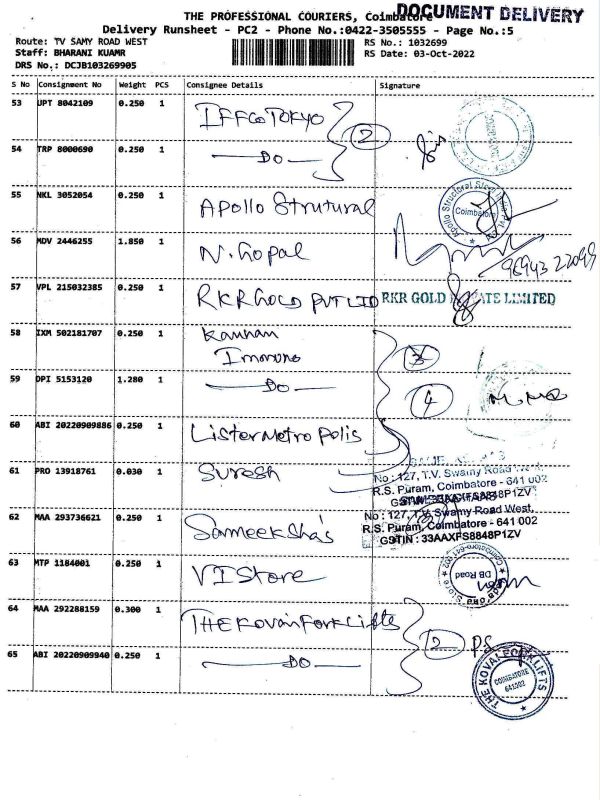 DOCUMENT DELIVERY
THE PROFESSIONAL COURIERS, Coimbatore
Delivery Runsheet - PC2 - Phone No.:0422-3505555 - Page No.:5
Route: TV SAMY ROAD WEST
Staff: BHARANI KUAMR
DRS No.: DCJB103269905
RS No.: 1032699
RS Date: 03-Oct-2022
S No Consignment No Weight PCS Consignee Details Signature
53 UPT 8042109 0.250 1 IFFCO TOKYO
2
54 TRP 8000690 0.250 1 DO
55 NKL 3052054 0.250 1 Apollo Strutural
Apollo Structural Steel
Coimbatore
56 MDV 2446255 1.850 1 N. Gopal
96943 22099
57 VPL 215032385 0.250 1 RKR GOLD PVT LTD RKR GOLD PRIVATE LIMITED
58 IXM 502181707 0.250 1 Kannan
3
59 DPI 5153120 1.280 1 DO
4
60 ABI 20220909886 0.250 1 Lister Metro Polis
61 PRO 13918761 0.030 1 Suresh
No : 127, T.V. Swamy Road West,
R.S. Puram, Coimbatore - 641 002
62 MAA 293736621 0.250 1 Sameeksha's
No : 127, T.V. Swamy Road West,
R.S. Puram, Coimbatore - 641 002
GSTIN : 33AAXFS8848P1ZV
63 MTP 1184001 0.250 1 VI Store
DB Road
Coimbatore-641 002
64 MAA 292288159 0.300 1 THE Kovai Forklifts
2
65 ABI 20220909940 0.250 1 DO
THE KOVAI FORKLIFTS
COIMBATORE
641002